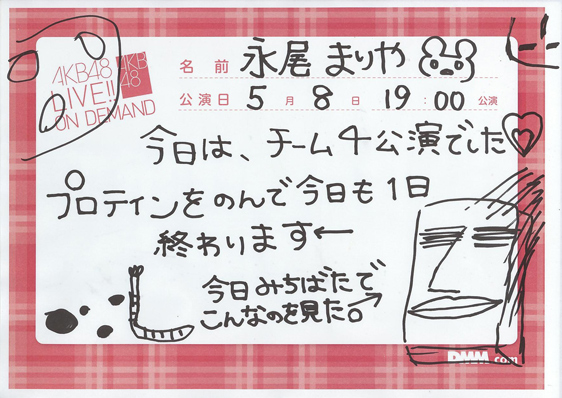 AKB48
LIVE!!
ON DEMAND
AKB
48
名前 永尾まりや
公演日 5月8日 19:00公演
今日は、チーム4公演でした
プロティンをのんで今日も1日
終わります←
今日みちばたで
こんなのを見た。→
DMM.com